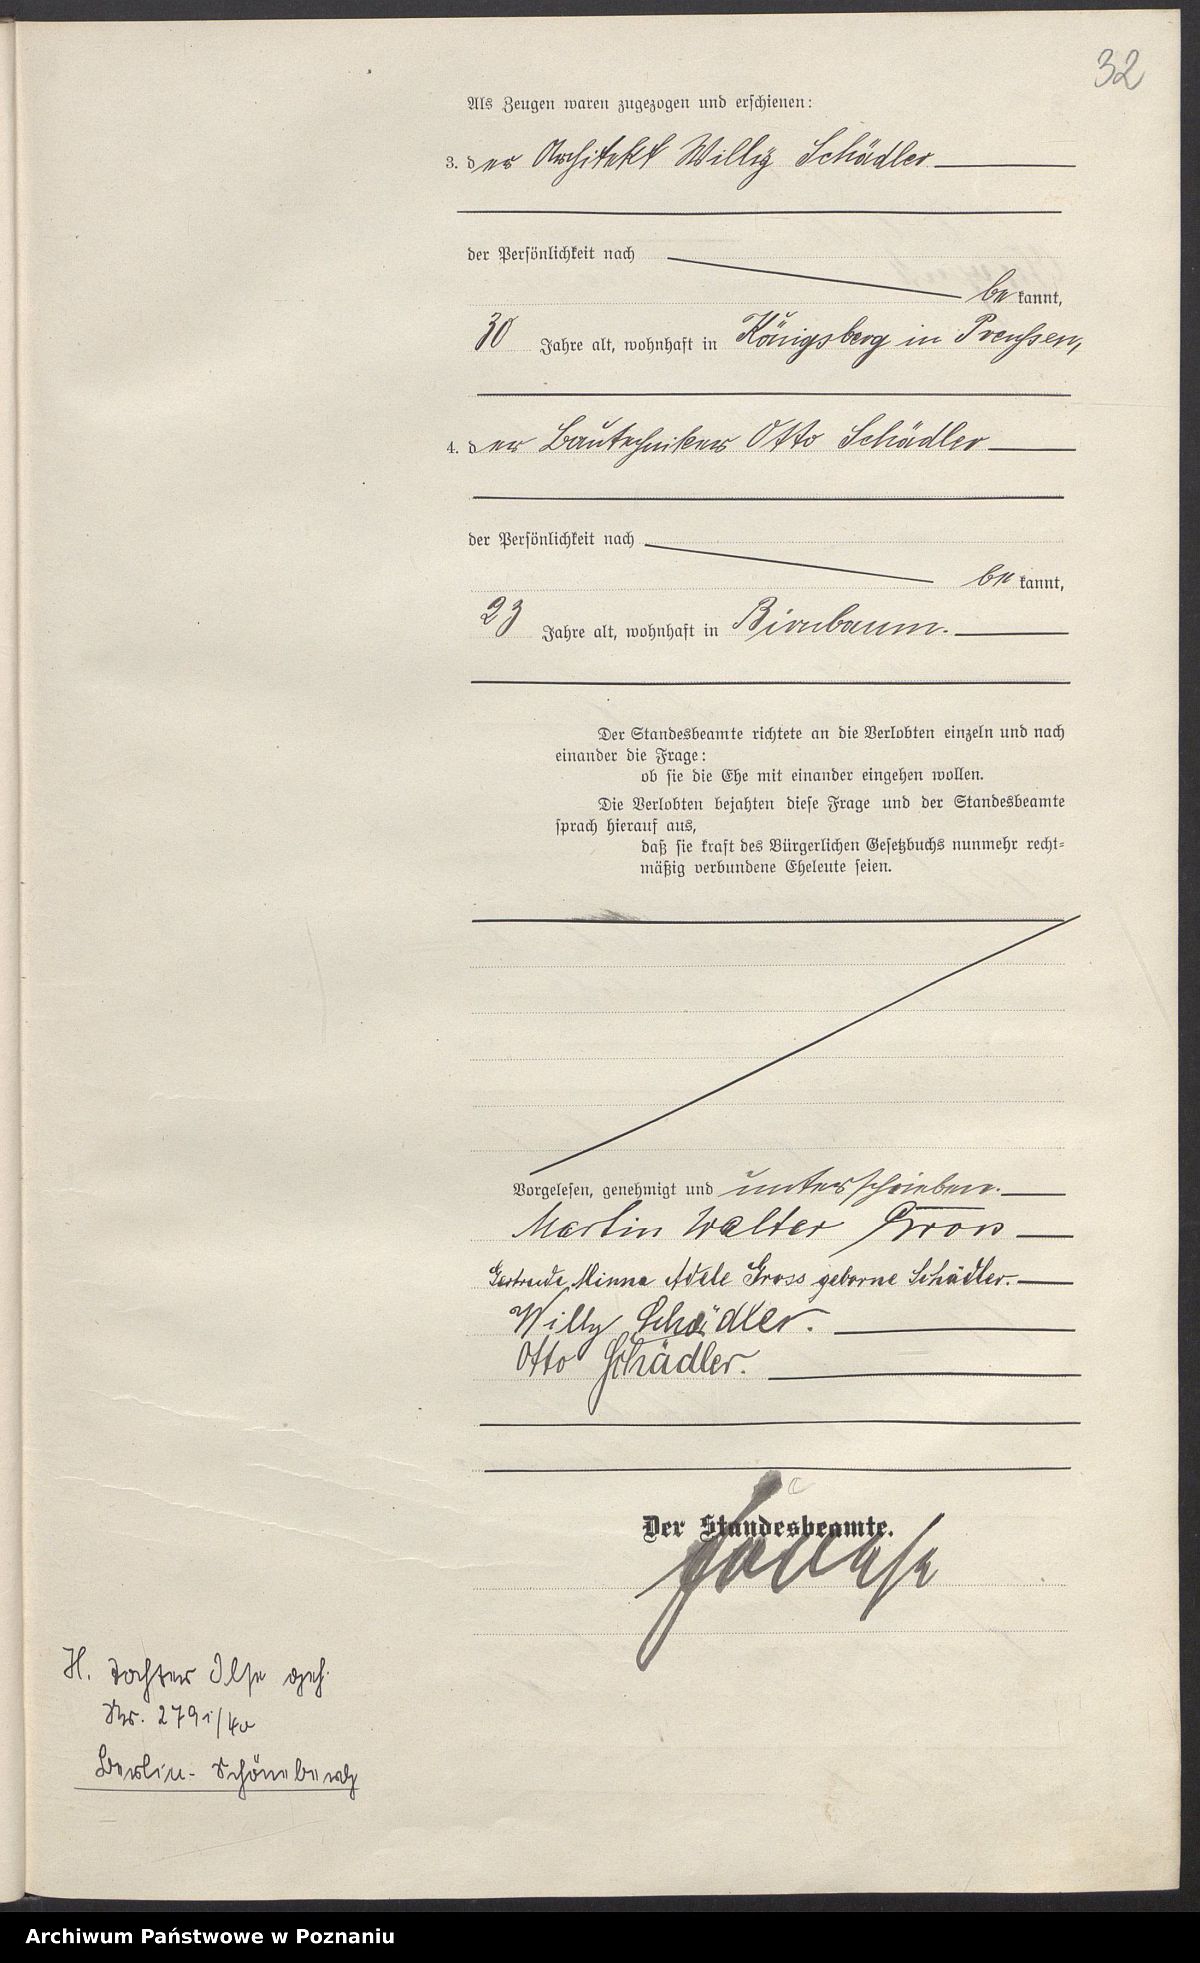 32
Als Zeugen waren zugezogen und erschienen:
3. der Architekt Willy Schädler
der Persönlichkeit nach
be kannt,
30 Jahre alt, wohnhaft in Königsberg in Preußen,
4. der Bautechniker Otto Schädler
der Persönlichkeit nach
be kannt,
23 Jahre alt, wohnhaft in Birnbaum.
Der Standesbeamte richtete an die Verlobten einzeln und nach
einander die Frage:
ob sie die Ehe mit einander eingehen wollen.
Die Verlobten bejahten diese Frage und der Standesbeamte
sprach hierauf aus,
daß sie kraft des Bürgerlichen Gesetzbuchs nunmehr recht-
mäßig verbundene Eheleute seien.
Vorgelesen, genehmigt und unterschrieben.
Martin Walter Gross
Gertrude Minna Adele Gross geborne Schädler.
Willy Schädler.
Otto Schädler.
Der Standesbeamte.
H. Tochter Ilse geh.
Nr. 2791/40
Berlin-Schöneberg
Archiwum Państwowe w Poznaniu